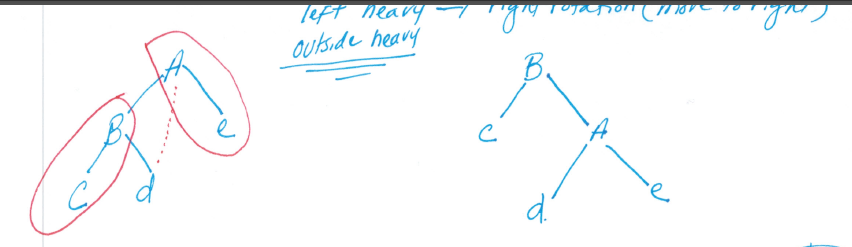 left heavy → right rotation (move to right)
outside heavy
A
B
e
C
d
B
C
A
d
e